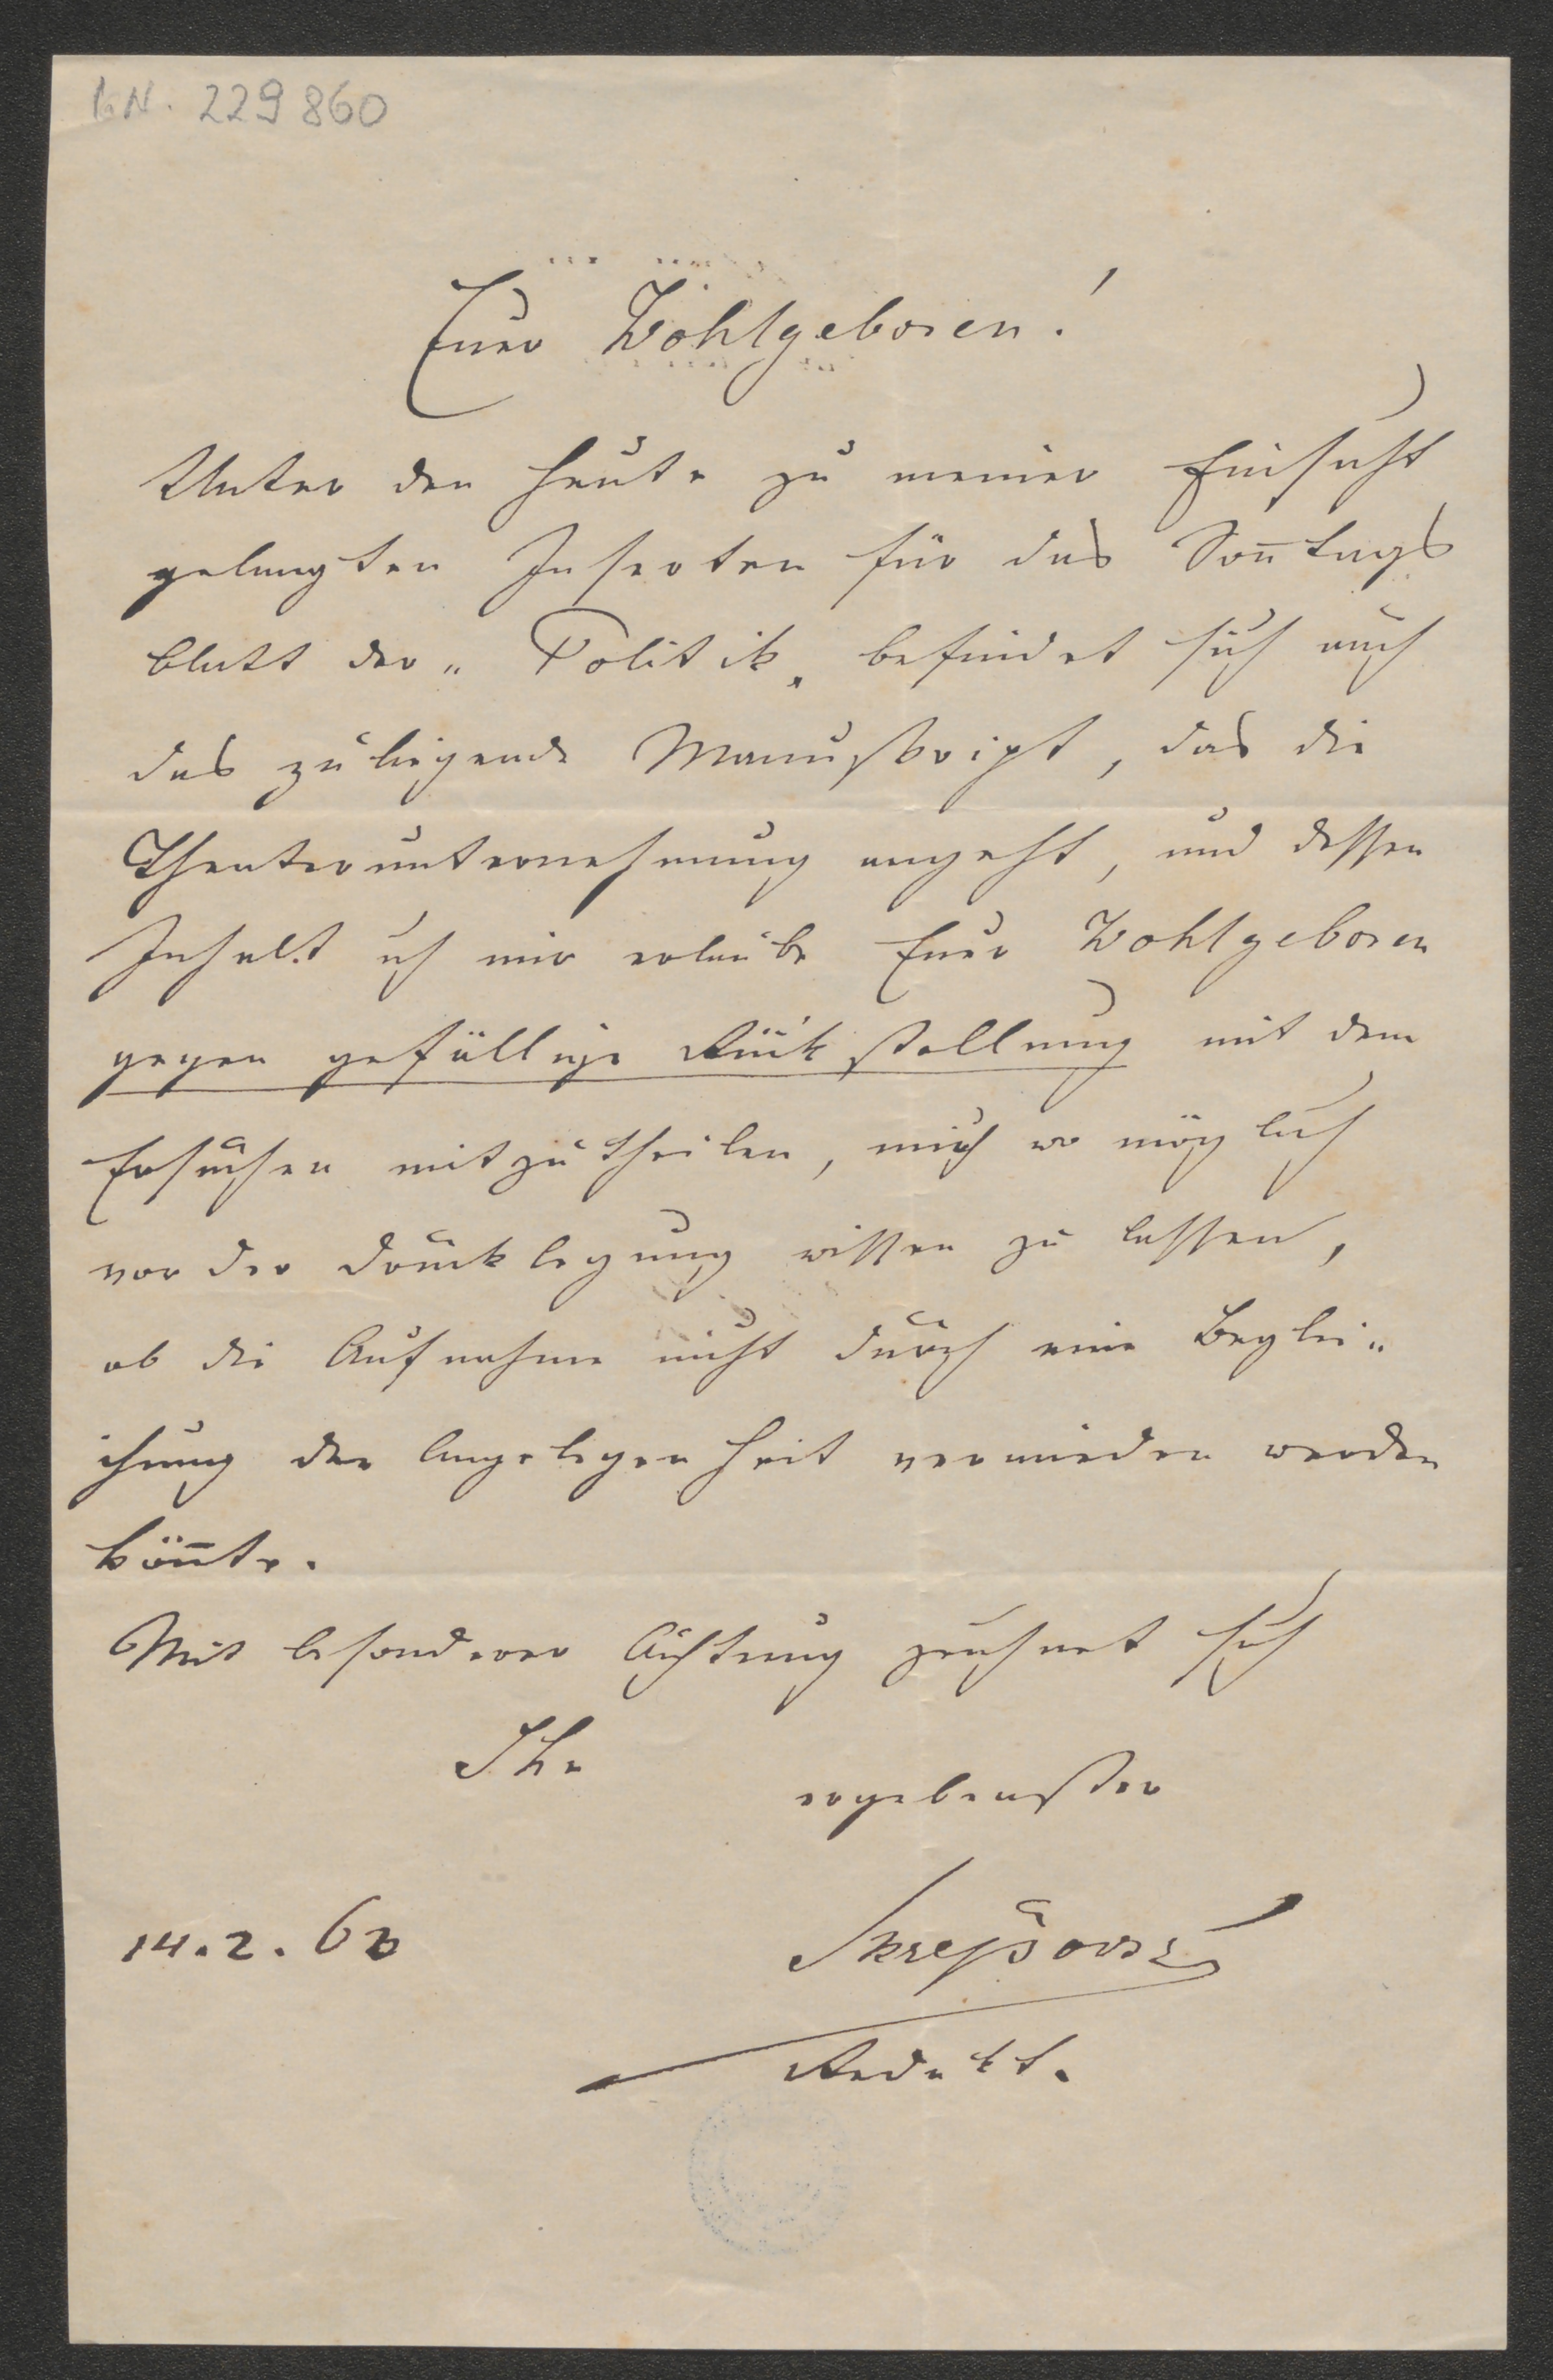 I.N. 229860
Euer Wohlgeboren!
Unter den heute zu meiner Einsicht
gelangten Inserten für das Sonntags
blatt der „Politik„ befindet sich auch
das zuliegende Manuskript, das die
Theaterunternehmung angeht, und dessen
Inhalt ich mir erlaube Euer Wohlgeboren
gegen gefällige Rückstellung mit dem
Ersuchen mitzutheilen, mich wo möglich
vor der Drucklegung wissen zu lassen,
ob die Aufnahme nicht durch eine Beglei„
chung der Angelegenheit vermieden werden
könnte.
Mit besonderer Achtung zeichnet sich
Ihr
ergebenster
14.2.63
Skrejšovský
Redakt.